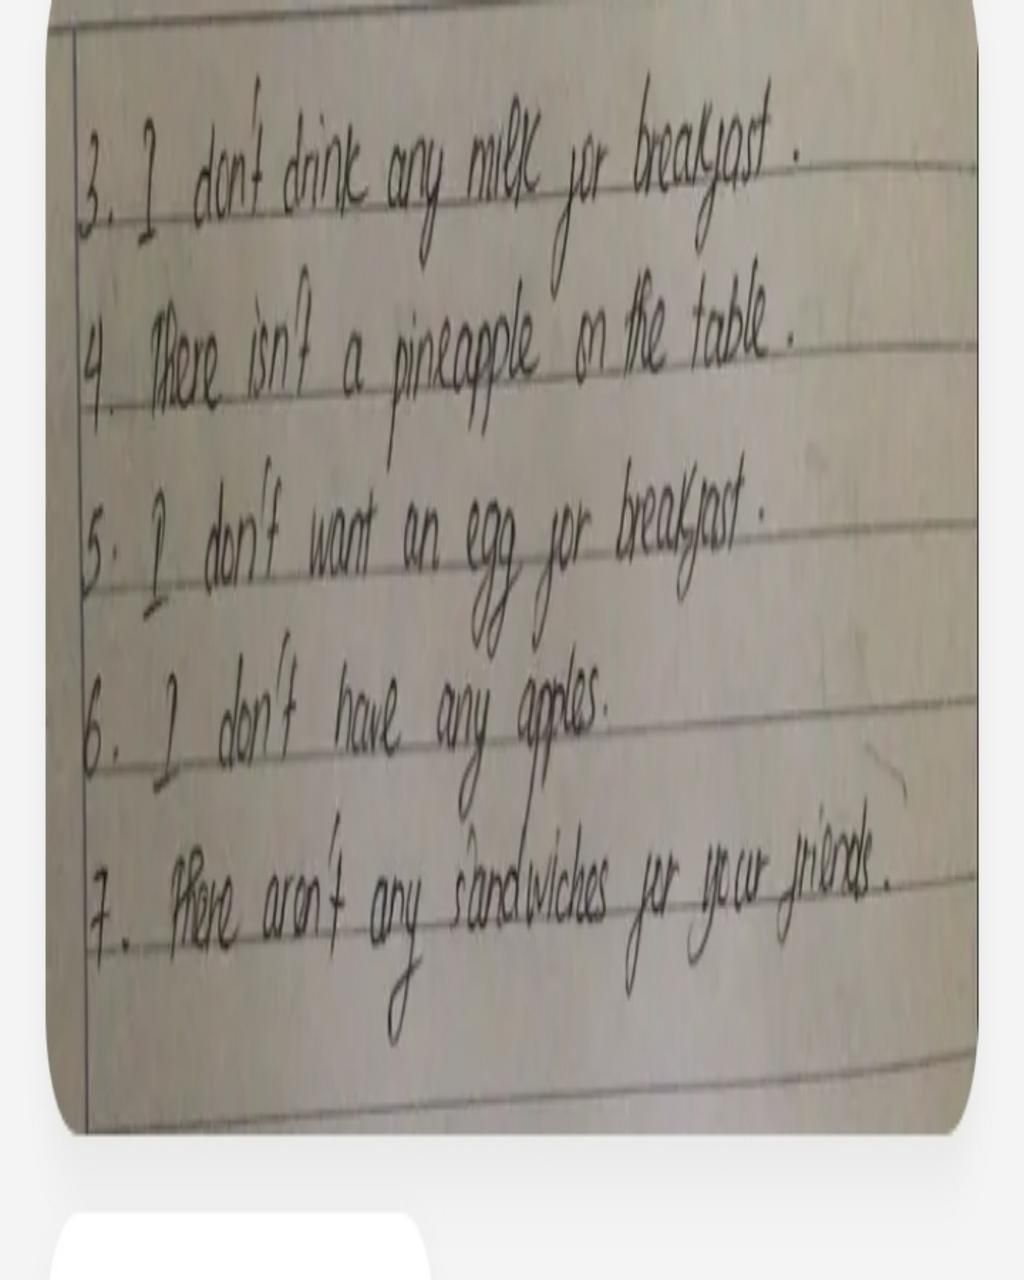 3. I don't drink any milk for breakfast.
4. There isn't a pineapple on the table.
5. I don't want an egg for breakfast.
6. I don't have any apples.
7. There aren't any sandwiches for your friends.